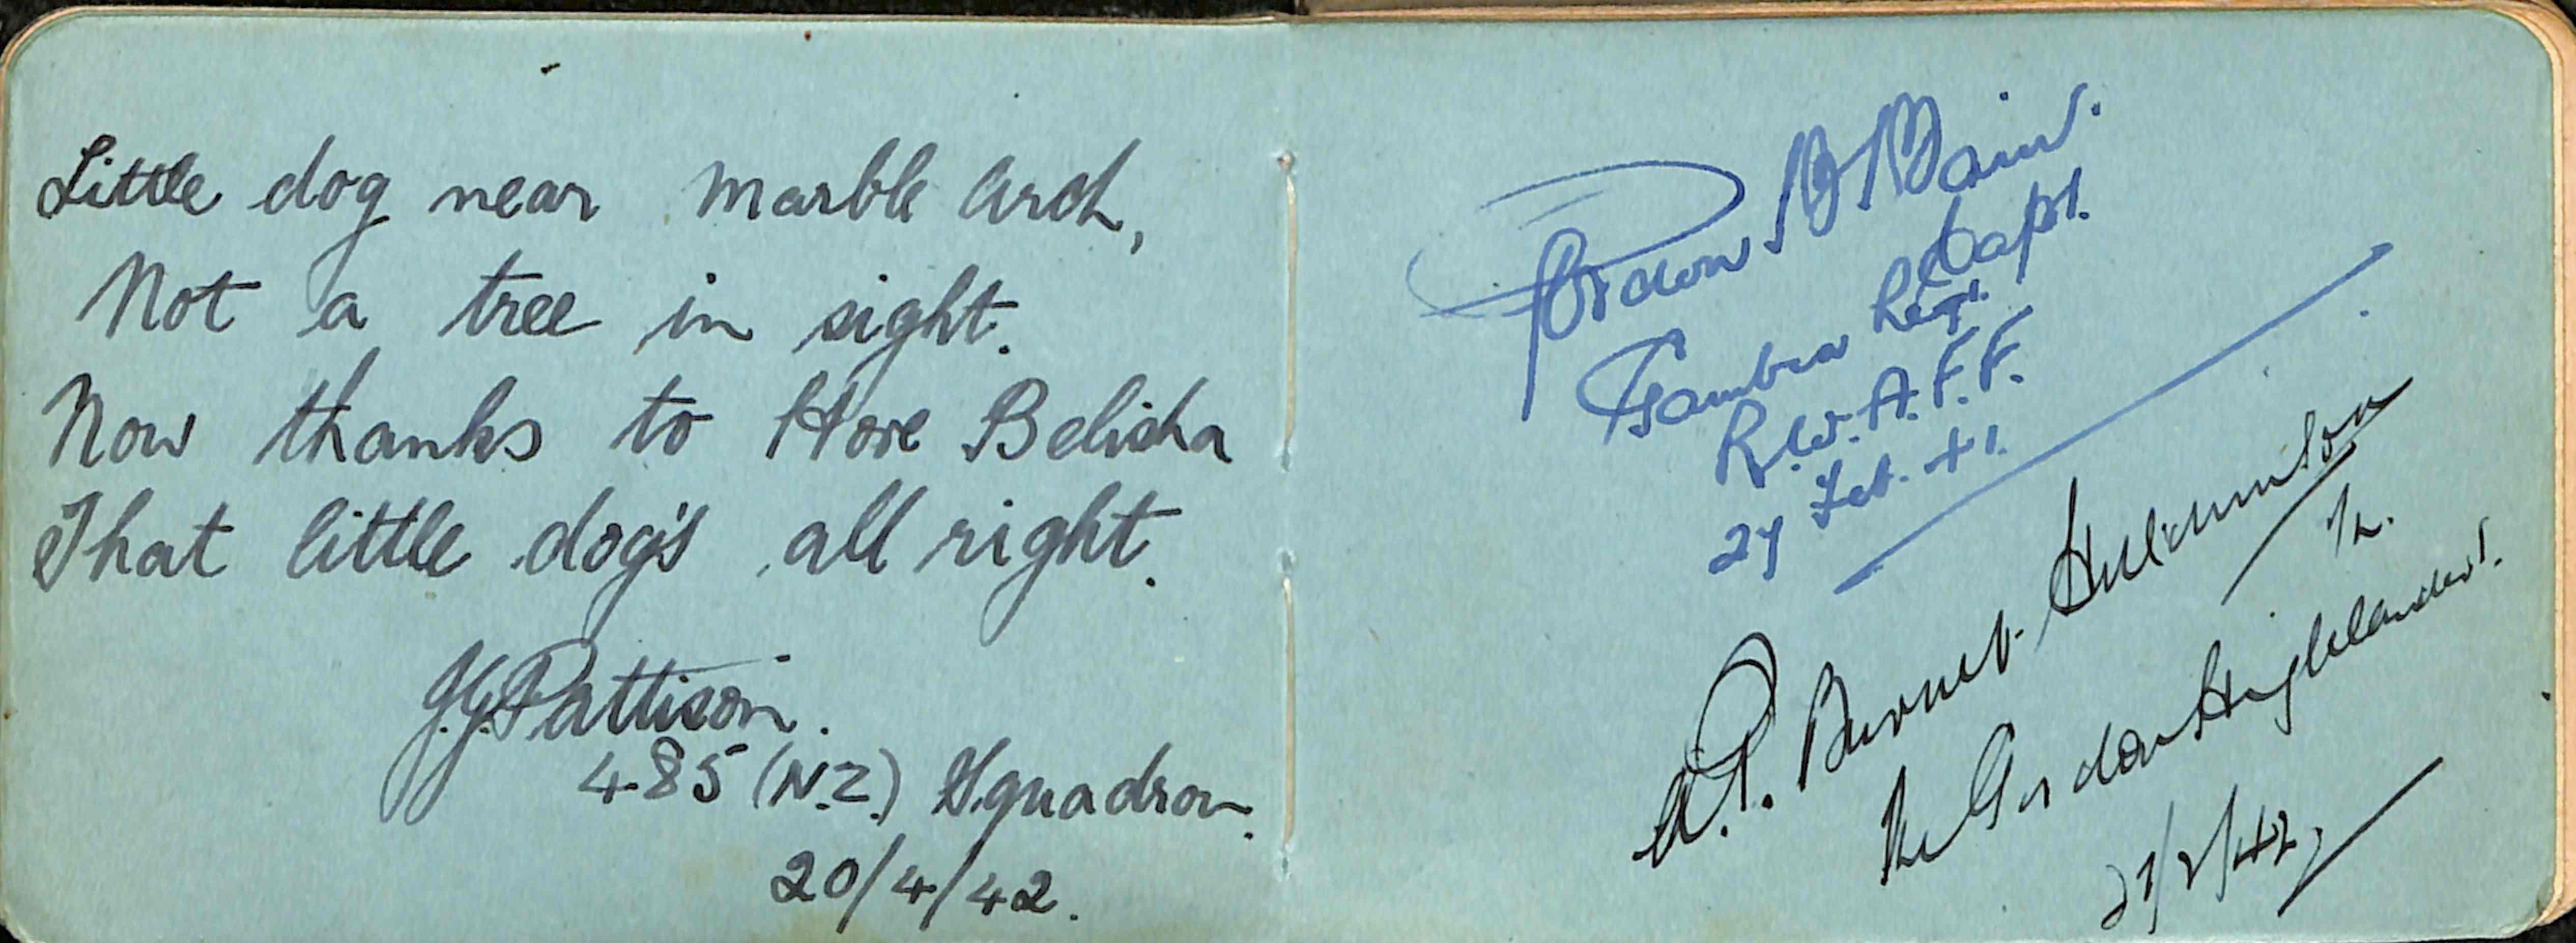 Little dog near Marble Arch,
Not a tree in sight.
Now thanks to Hore Belisha
That little dog's all right.
J.G. Pattison.
485 (N.Z.) Squadron.
20/4/42.
Gordon
Capt.
Gambia Regt.
R.W.A.F.F.
27 Feb. 41.
A.P. Burnet-Hutchinson
The Gordon Highlanders.
/42